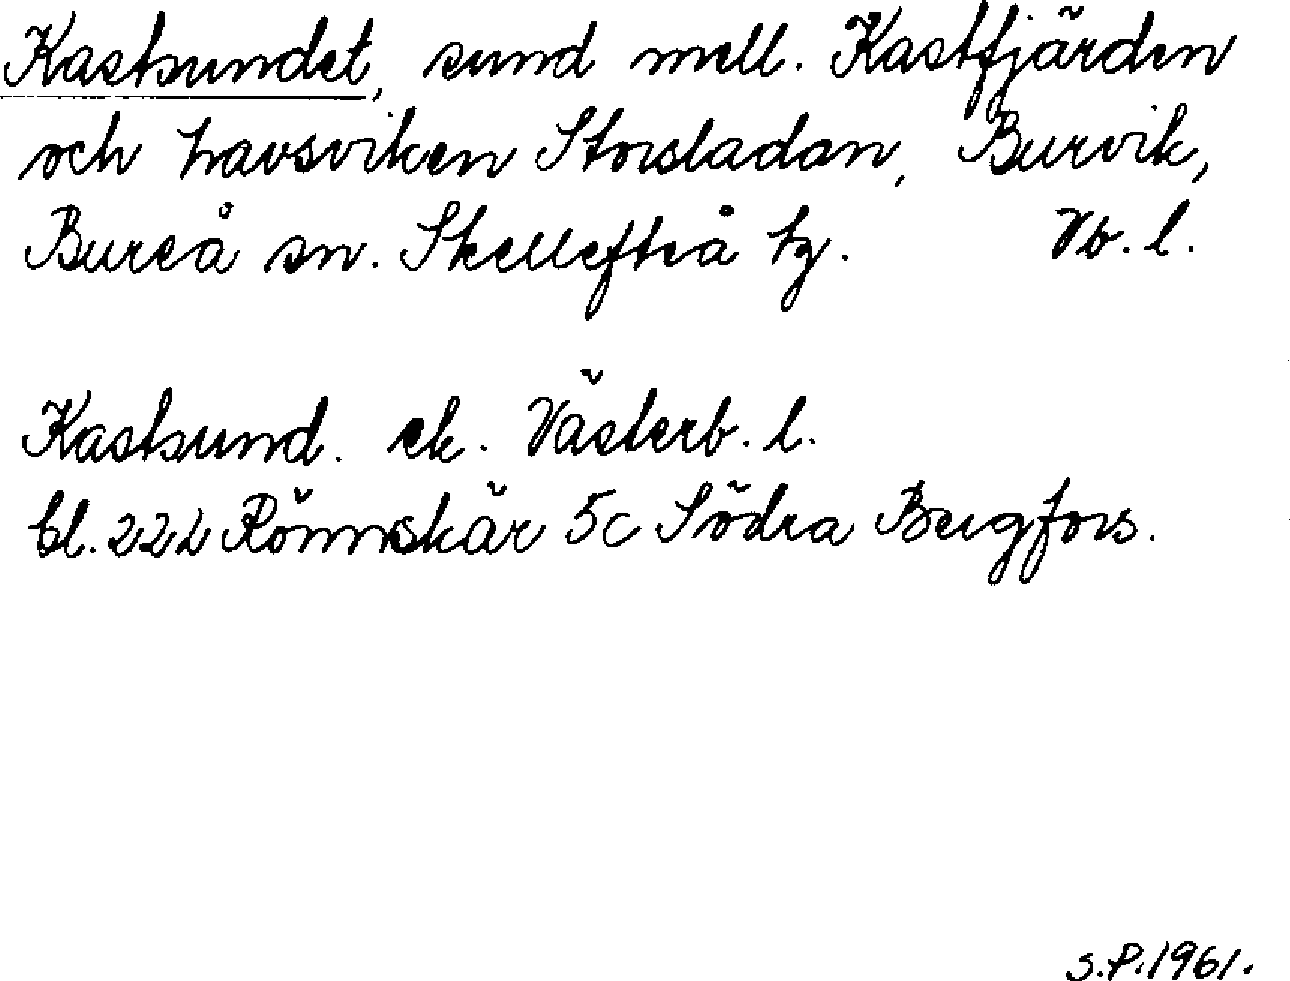 Kastsundet, sund mell. Kastfjärden
och havsviken Storsladan, Burvik,
Bureå sn. Skellefteå tg. Vb. l.
Kastsund. ek. Västerb. l.
bl. 222 Rönnskär 5c Södra Bergfors.
S.P. 1961.